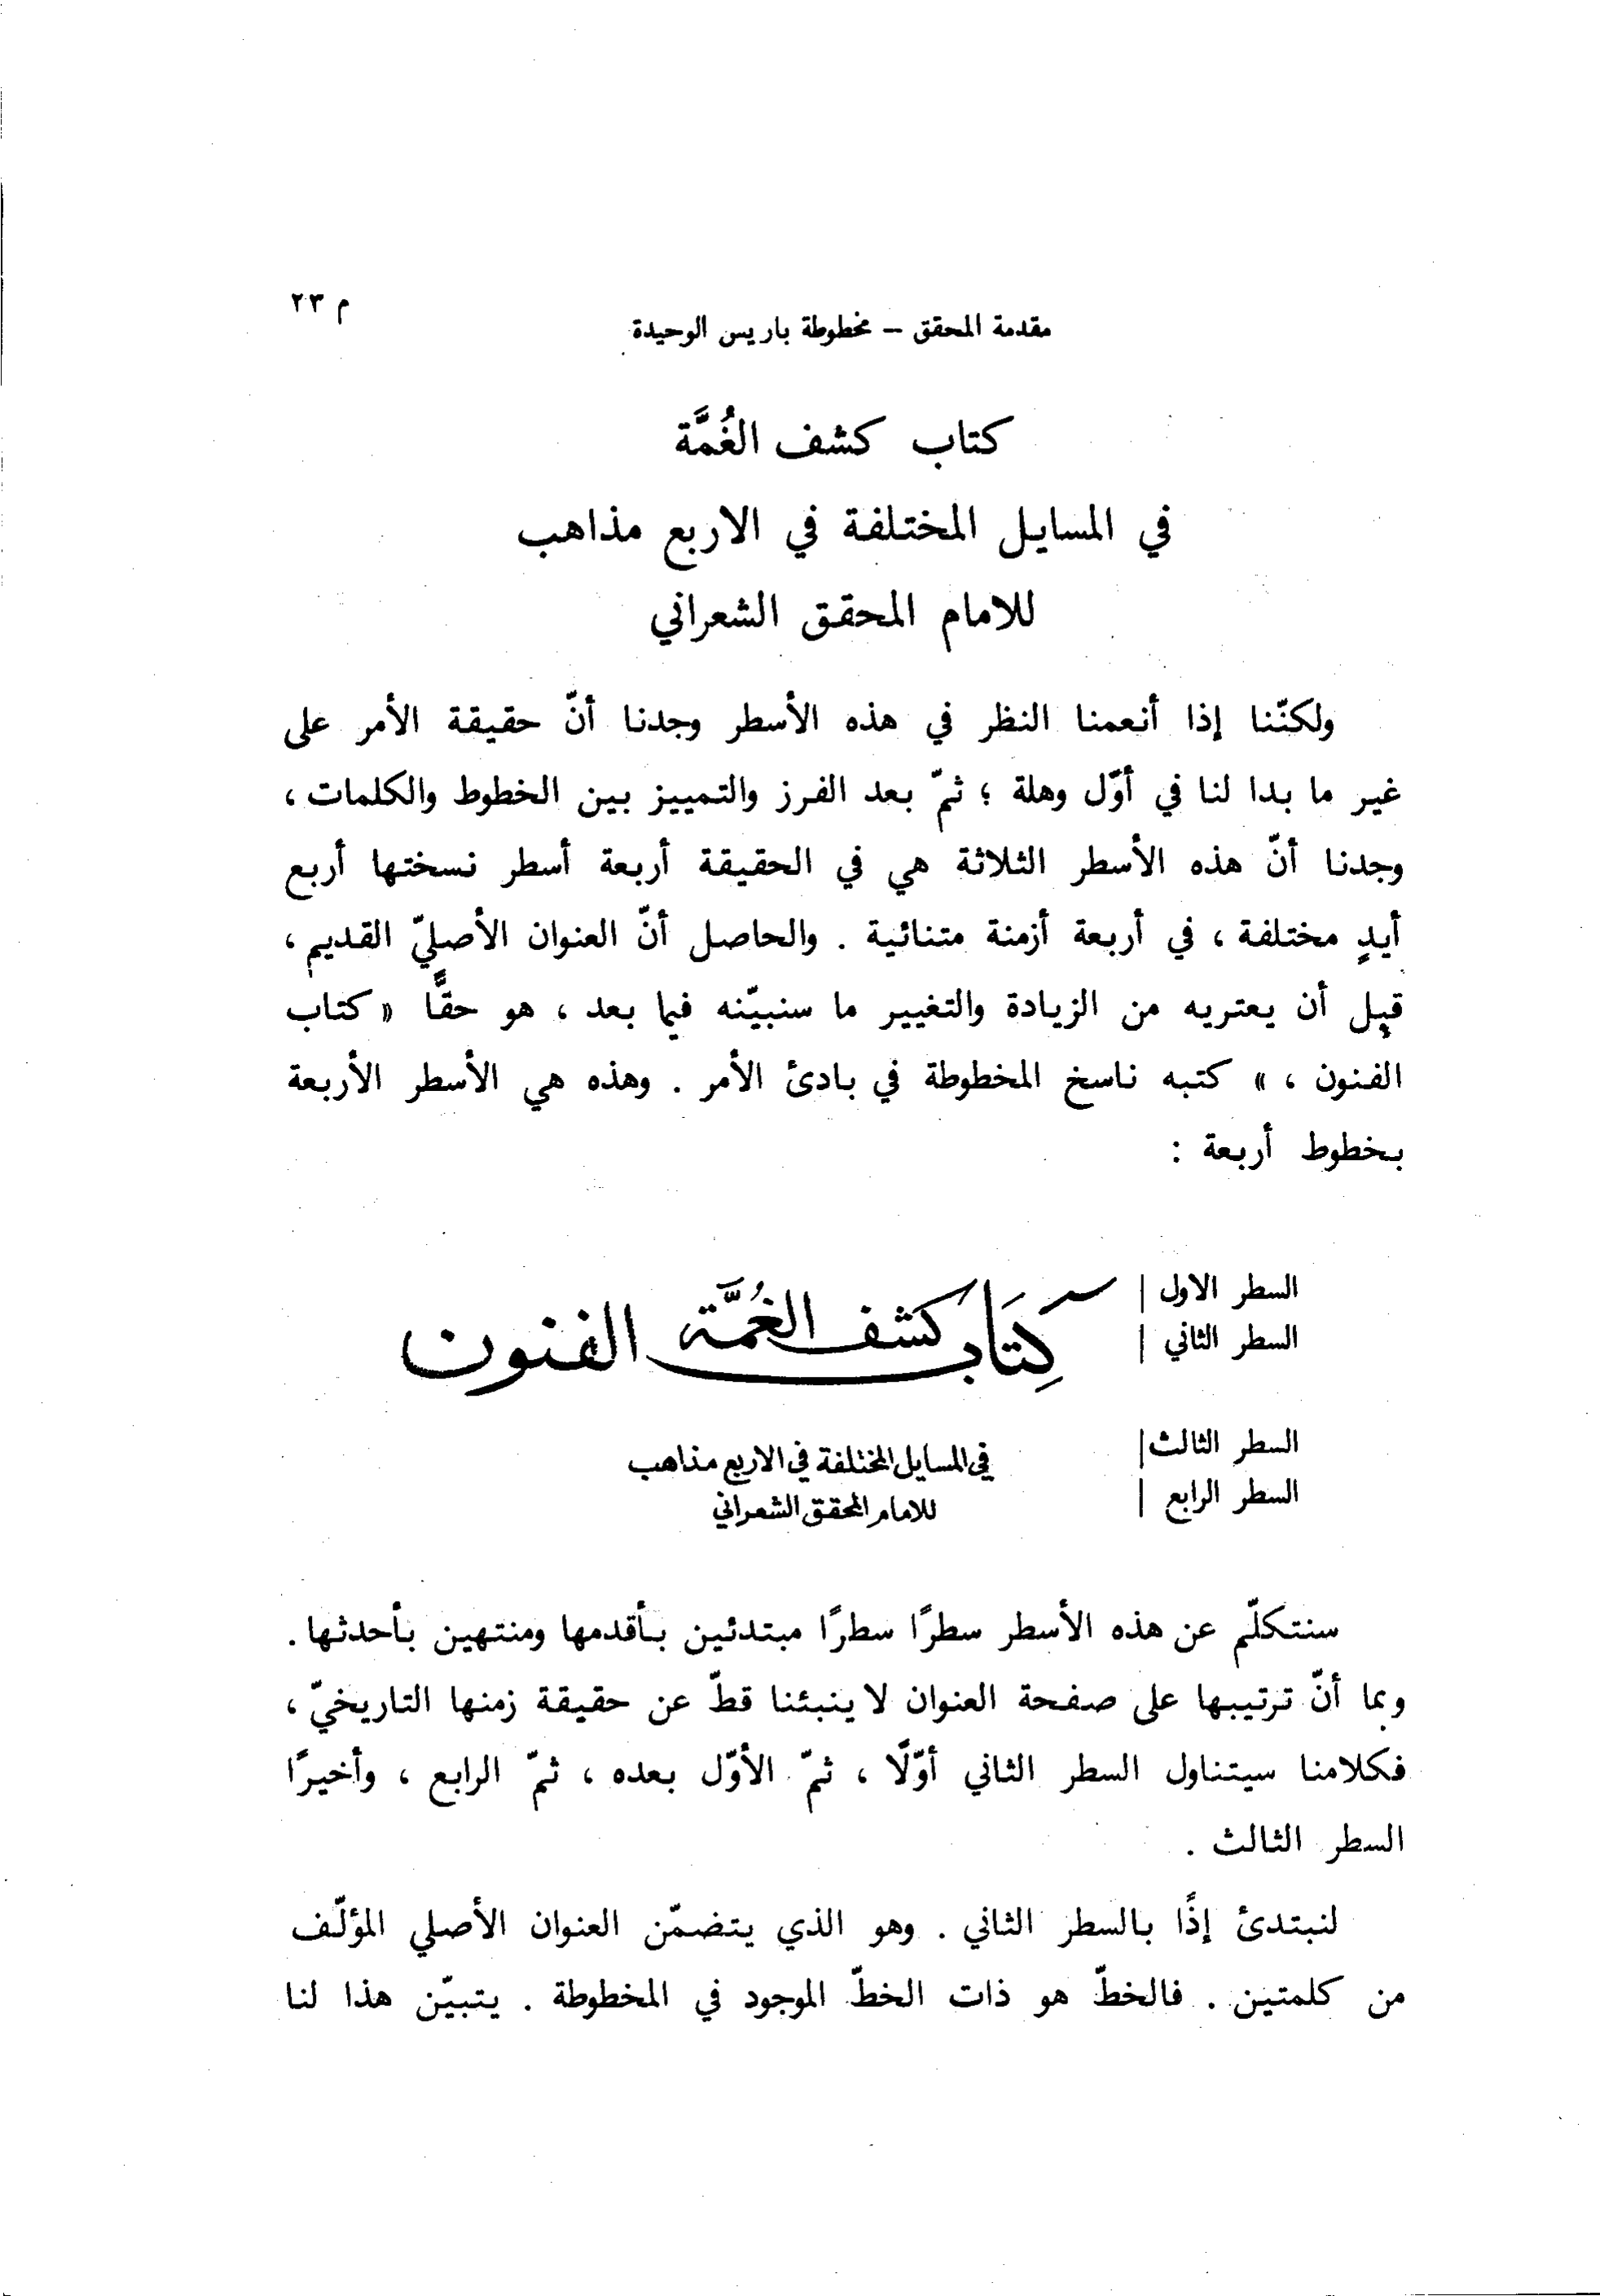 م ٢٣
مقدمة المحقق – مخطوطة باريس الوحيدة
كتاب كشف الغُمَّة
في المسايل المختلفة في الاربع مذاهب
للامام المحقق الشعراني
ولكنّنا إذا أنعمنا النظر في هذه الأسطر وجدنا أنّ حقيقة الأمر على
غير ما بدا لنا في أوّل وهلة ؛ ثمّ بعد الفرز والتمييز بين الخطوط والكلمات ،
وجدنا أنّ هذه الأسطر الثلاثة هي في الحقيقة أربعة أسطر نسختها أربع
أيدٍ مختلفة ، في أربعة أزمنة متنائية . والحاصل أنّ العنوان الأصليّ القديم ،
قبل أن يعتريه من الزيادة والتغيير ما سنبيّنه فيما بعد ، هو حقًّا « كتاب
الفنون ، » كتبه ناسخ المخطوطة في بادئ الأمر . وهذه هي الأسطر الأربعة
بخطوط أربعة :
السطر الاول | كشف الغُمَّة
السطر الثاني | كِتَاب الفنون
السطر الثالث | في المسايل المختلفة في الاربع مذاهب
السطر الرابع | للامام المحقق الشعراني
سنتكلّم عن هذه الأسطر سطرًا سطرًا مبتدئين بأقدمها ومنتهين بأحدثها .
وبما أنّ ترتيبها على صفحة العنوان لا ينبئنا قطّ عن حقيقة زمنها التاريخيّ ،
فكلامنا سيتناول السطر الثاني أوّلًا ، ثمّ الأوّل بعده ، ثمّ الرابع ، وأخيرًا
السطر الثالث .
لنبتدئ إذًا بالسطر الثاني . وهو الذي يتضمّن العنوان الأصلي المؤلّف
من كلمتين . فالخطّ هو ذات الخطّ الموجود في المخطوطة . يتبيّن هذا لنا